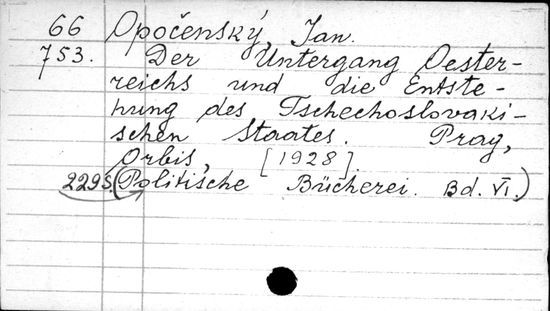 66 Opočenský, Jan.
753. Der Untergang Oester-
reichs und die Entste-
hung des Tschechoslovaki-
schen Staates. Prag,
Orbis, [1928]
229S. (Politische Bücherei. Bd. VI.)